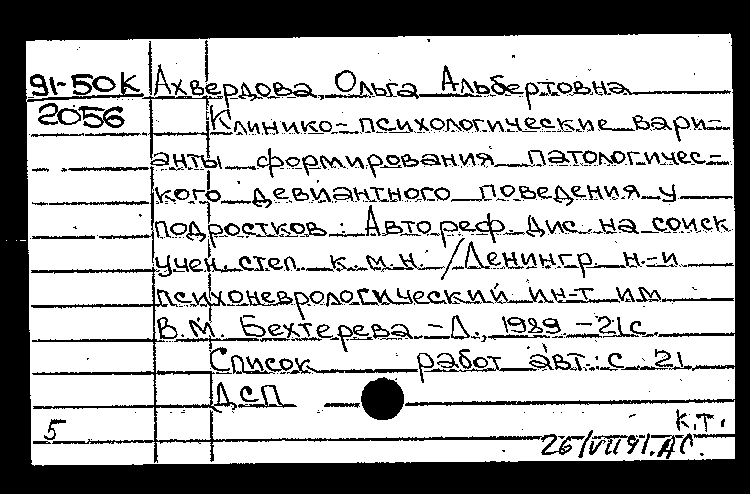 91-50К Ахвердова Ольга Альбертовна
2056 Клинико-психологические вари-
анты формирования патологичес-
кого девиантного поведения у
подростков : Автореф. дис. на соиск
учен. степ. к.м.н. /Ленингр. н.-и
психоневрологический ин-т им
В.М. Бехтерева -Л., 1989 -21с.
Список работ авт.: с 21
ДСП
5 к.т.
26/VII 91. АС.